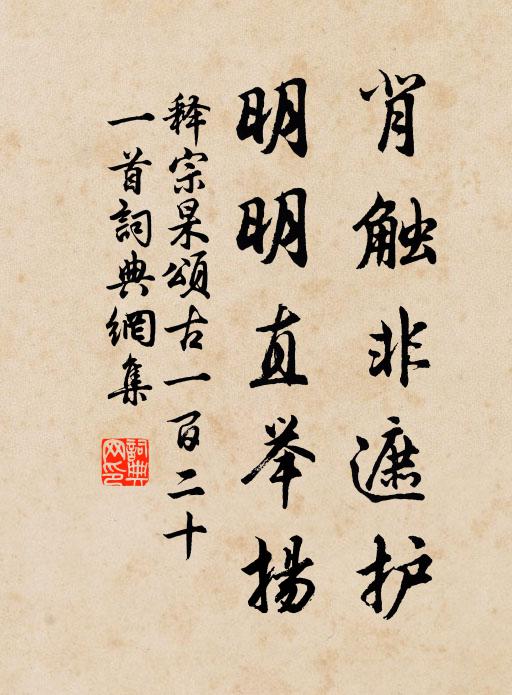 背触非遮护
明明直举揚
释宗杲頌古一百二十
一首詞典網集
詞典网印